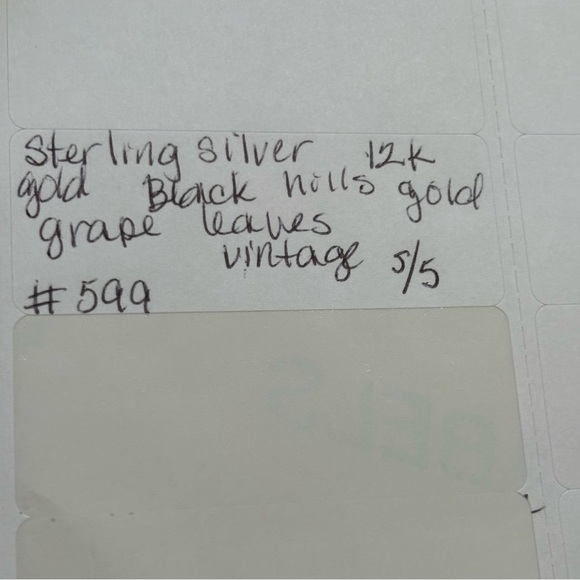 Sterling silver 12K
gold Black hills gold
grape leaves
vintage s/5
#599
BELS